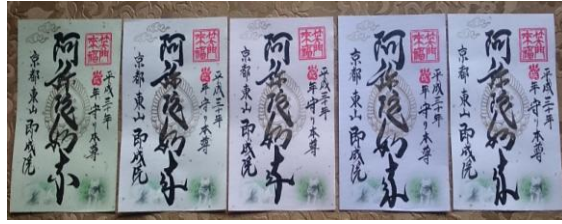 笑門
来福
平成三十年
年守り本尊
阿弥陀如来
京都東山 即成院
笑門
来福
平成三十年
年守り本尊
阿弥陀如来
京都東山 即成院
笑門
来福
平成三十年
年守り本尊
阿弥陀如来
京都東山 即成院
笑門
来福
平成三十年
年守り本尊
阿弥陀如来
京都東山 即成院
笑門
来福
平成三十年
年守り本尊
阿弥陀如来
京都東山 即成院